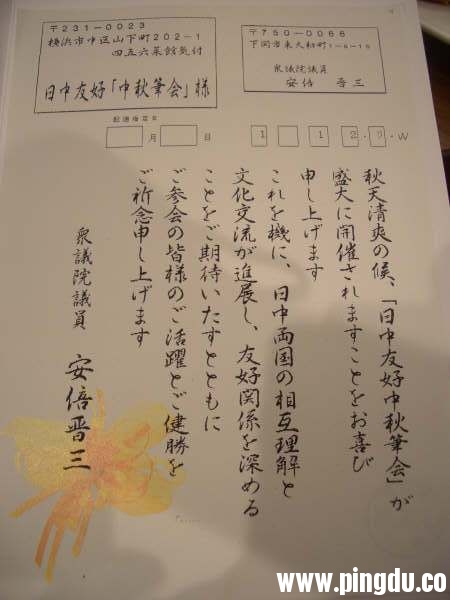 〒231-0023
横浜市中区山下町202-1
四五六菜館気付
日中友好「中秋筆会」様
〒750-0066
下関市東大和町1-8-16
衆議院議員
安倍 晋三
配達指定日
月 日
秋天清爽の候、「日中友好中秋筆会」が
盛大に開催されますことをお喜び
申し上げます
これを機に、日中両国の相互理解と
文化交流が進展し、友好関係を深める
ことをご期待いたすとともに
ご参会の皆様のご活躍とご健勝を
ご祈念申し上げます
衆議院議員
安倍晋三
www.pingdu.co